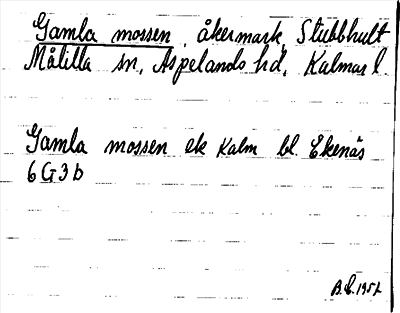 Gamla mossen, åkermark, Stubbhult
Målilla sn, Aspelands hd, Kalmar l.
Gamla mossen ek Kalm bl. Ekenäs
6G3b